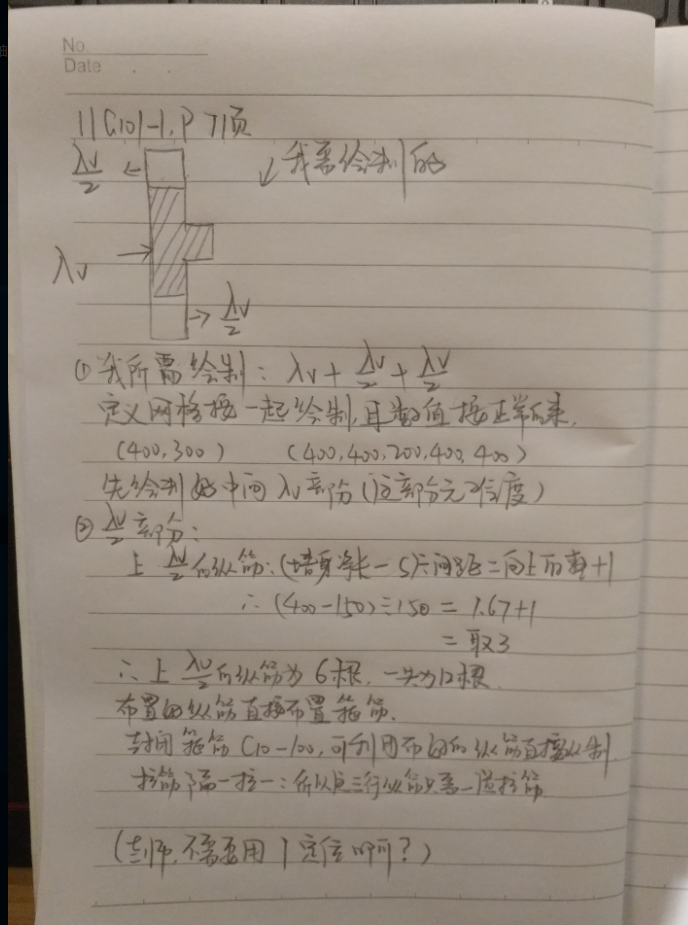 No.
Date . .
11G101-1, P 71页
λv/2
我需绘制的
λv
λv/2
① 我所需绘制: λv + λv/2 + λv/2
定义网格按一起绘制,且数值按正常来,
(400,300) (400,400,200,400,400)
先绘制好中间λv部份(这部分无难度)
② λv/2部份:
上λv/2的纵筋:(墙身净长-S)÷间距=向上取整+1
∴ (400-150)÷150 = 1.67+1
= 取3
∴上λv/2的纵筋为6根,一共为12根
布置的纵筋直接布置箍筋.
封闭箍筋C10-100,可利用布的纵筋直接绘制
拉筋隔一拉一:所以三行纵筋只需一道拉筋
(老师,不需要用1定位啊?)